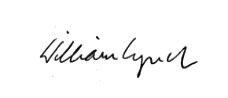 William Lynch